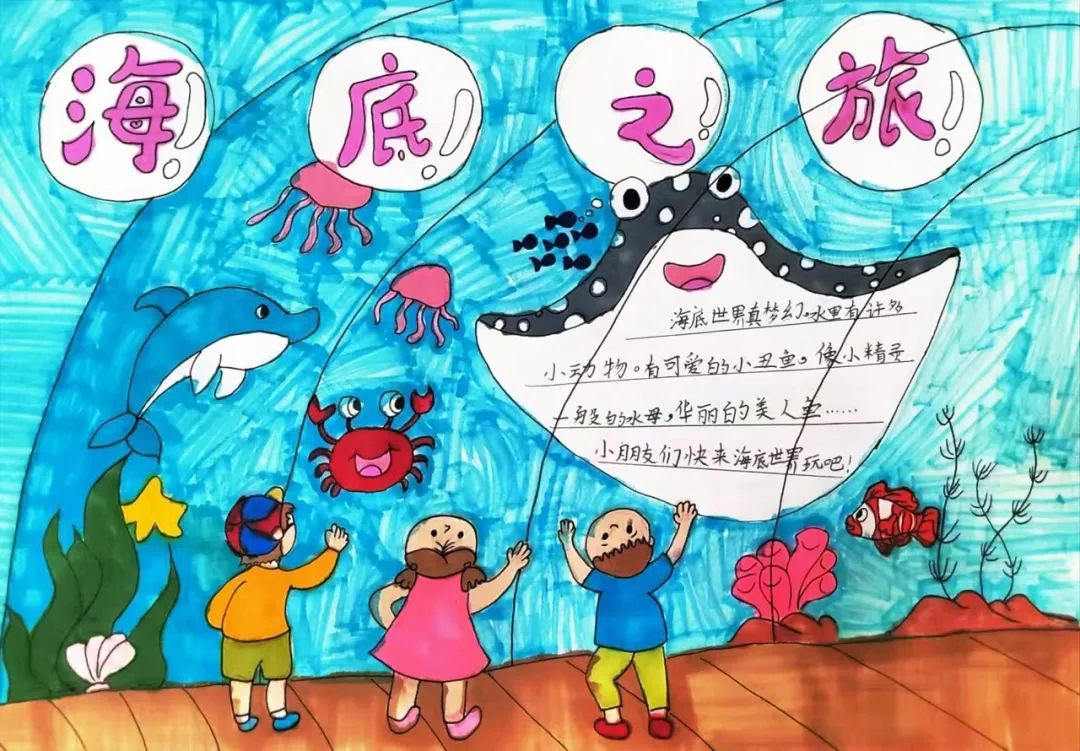 海底之旅
海底世界真梦幻。水里有许多
小动物。有可爱的小丑鱼。像小精灵
一般的水母,华丽的美人鱼……
小朋友们快来海底世界玩吧!